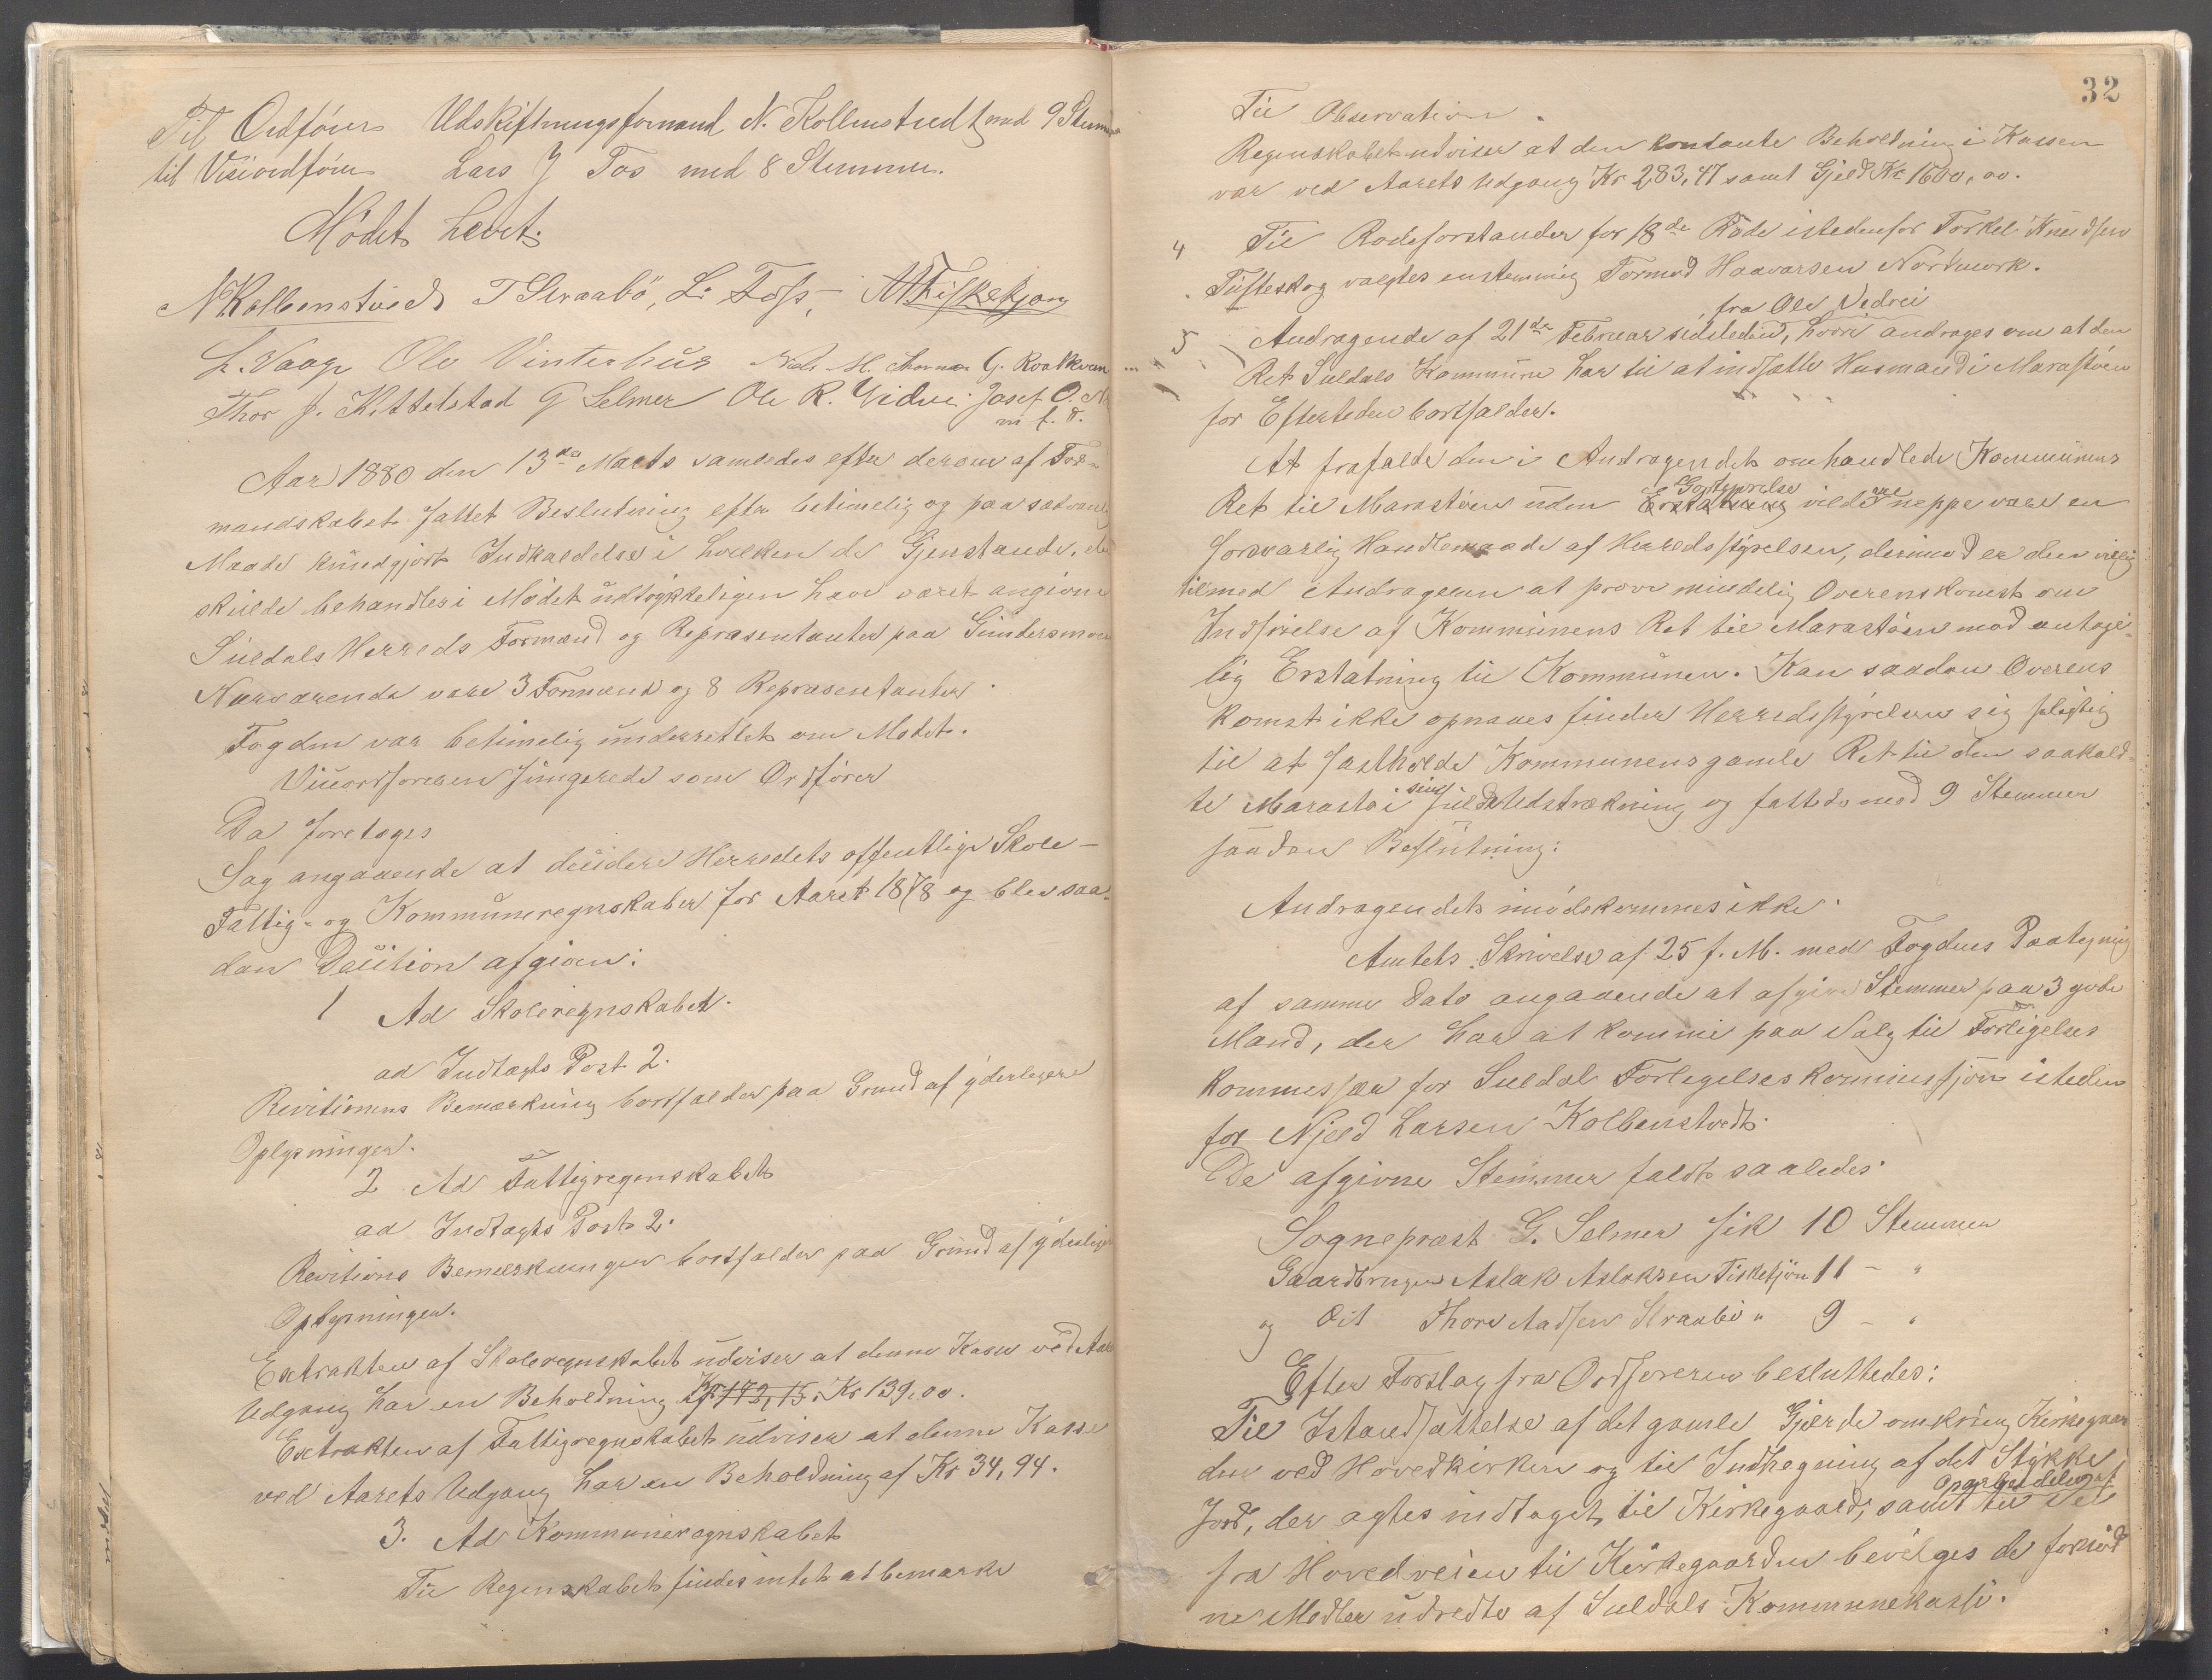 Til Ordfører Udskiftningsformand N. Kollenstvedt med 9 Stemmer
til Viseordfører Lars J Fos med 8 Stemmer.
Mödet hævet.
N Kolbenstvedt T Straabö, L. Foss, A A Fisketjøn
L. Vaage Ole Vinterhus Niels M. G. Roalkvam
Thor J. Kittelstad G Selmer Ole R. Veidvei Josef O.
m f. v.
Aar 1880 den 13de Marts samledes efter derom af For-
mandskabet fattet Beslutning efter betimelig og paa sædvanlig
Maade kundgjort Indkaldelse i hvilken de Gjenstande, der
skulde behandles i Mödet udtrykkeligen have været angivne
Suldals Herreds Formænd og Repræsentanter paa
Nærværende vare 3 Formænd og 8 Repræsentanter.
Fogden var betimelig underrettet om Mödet.
Viceordføreren fungerede som Ordfører
Da foretoges
Sag angaaende at decidere Herredets offentlige Skole-
Fattig- og Kommuneregnskaber for Aaret 1878 og blev saa-
dan Decition afgiven:
1 Ad Skoleregnskabet.
ad Indtægts Post 2.
Revitionens Bemærkning bortfalder paa Grund af yderligere
Oplysninger.
2 Ad Fattigregenskabet
ad Indtægts Post 2.
Revitions Bemærkninger bortfalder paa Grund af yderligere
Oplysninger.
Extrakten af Skoleregnskabet udviser at denne Kasse ved Aarets
Udgang har en Beholdning Kr 172,15. Kr 139,00.
Extrakten af Fattigregnskabet udviser at denne Kasse
ved Aarets Udgang har en Beholdning af Kr 34,94.
3. Ad Kommuneregnskabet
Til Regenskabet findes intet at bemærke
32
Til Observation.
Regenskabet udviser at den kontante Beholdning i Kassen
var ved Aarets Udgang Kr 283,47 samt Gjeld Kr 1600,00.
4 Til Rodeforstander for 18de Rode istedenfor Torkel Knudsen
Tufteskog valgtes enstemmig Tormod Haavarsen Nordmork.
fra Ole Vedvei
5 Andragende af 21de Februar sidstleden, hvori andrages om at den
Ret Suldals Kommune har til at indsætte Husmand i Marastöen
for Eftertiden bortfalder.
At frafalde den i Andragendet omhandlede Kommunens
Godtgjørelse
Ret til Marastöen uden Erstatning vilde neppe være en
forsvarlig Handlemaade af Herredsstyrelsen, derimod er den villig
til med Andrageren at prøve mindelig Overenskomst om
Indfrielse af Kommunens Ret til Marastöen mod antage-
lig Erstatning til Kommunen. Kan saadan Overens
komst ikke opnaaes finder Herredsstyrelsen sig pligtig
til at fastholde Kommunens gamle Ret til den saakald-
te Marastö i sin fulde Udstrækning og fattedes med 9 Stemmer
saadan Beslutning:
Andragendet imödekommes ikke.
Amtets Skrivelse af 25 f. M. med Fogdens Paategning
af samme Dato angaaende at afgive Stemmer paa 3 gode
Mænd, der har at komme paa Valg til Forligelses
kommissær for Suldal Forlegelseskommissjon isteden
for Njeld Larsen Kolbenstvedt.
De afgivne Stemmer faldt saaledes:
Sogneprest G. Selmer fik 10 Stemmer
Gaardbruger Aslak Aslaksen Fisketjön 11 - "
og Dit Thore Aadsen Straabö " 9 - "
Efter Forslag fra Ordføreren besluttedes:
Til Istandsættelse af det gamle Gjærde omkring Kirkegaar
den ved Hovedkirken og til Indhegning af det Stykke
Oparbeidelse af
Jord, der agtes indtaget til Kirkegaard, samt til Vei
fra Hovedveien til Kirkegaarden bevilges de fornöd
ne Midler udredte af Suldals Kommunekasse.